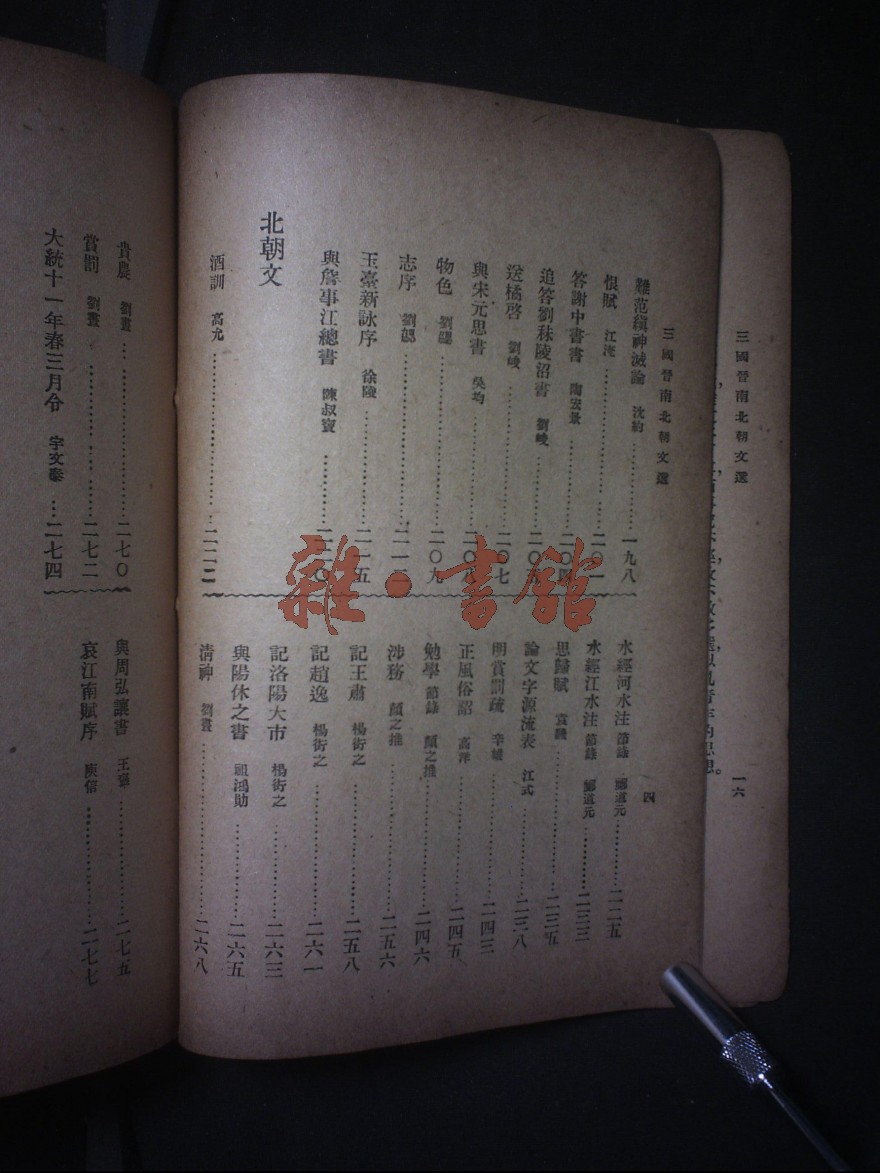 三國晉南北朝文選
一六
三國晉南北朝文選
四
難范縝神滅論 沈約 一九八
恨賦 江淹 二〇一
答謝中書書 陶宏景 二〇四
追答劉秣陵沼書 劉峻
送橘啓 劉峻 二〇七
與宋元思書 吳均 二〇八
物色 劉勰 二〇九
志序 劉勰
玉臺新詠序 徐陵 二一五
與詹事江總書 陳叔寶 二二〇
北朝文
酒訓 高允 二二二
水經河水注 節錄 酈道元 二二五
水經江水注 節錄 酈道元 二三三
思歸賦 袁翻 二三五
論文字源流表 江式 二三八
明賞罰疏 辛雄 二四三
正風俗詔 高洋 二四五
勉學 節錄 顏之推 二四六
涉務 顏之推 二五六
記王肅 楊衒之 二五八
記趙逸 楊衒之 二六一
記洛陽大市 楊衒之 二六三
與陽休之書 祖鴻勛 二六五
清神 劉晝 二六八
貴農 劉晝 二七〇
賞罰 劉晝 二七二
大統十一年春三月令 宇文泰 二七四
與周弘讓書 王褒 二七五
哀江南賦序 庾信 二七七
雜·書館